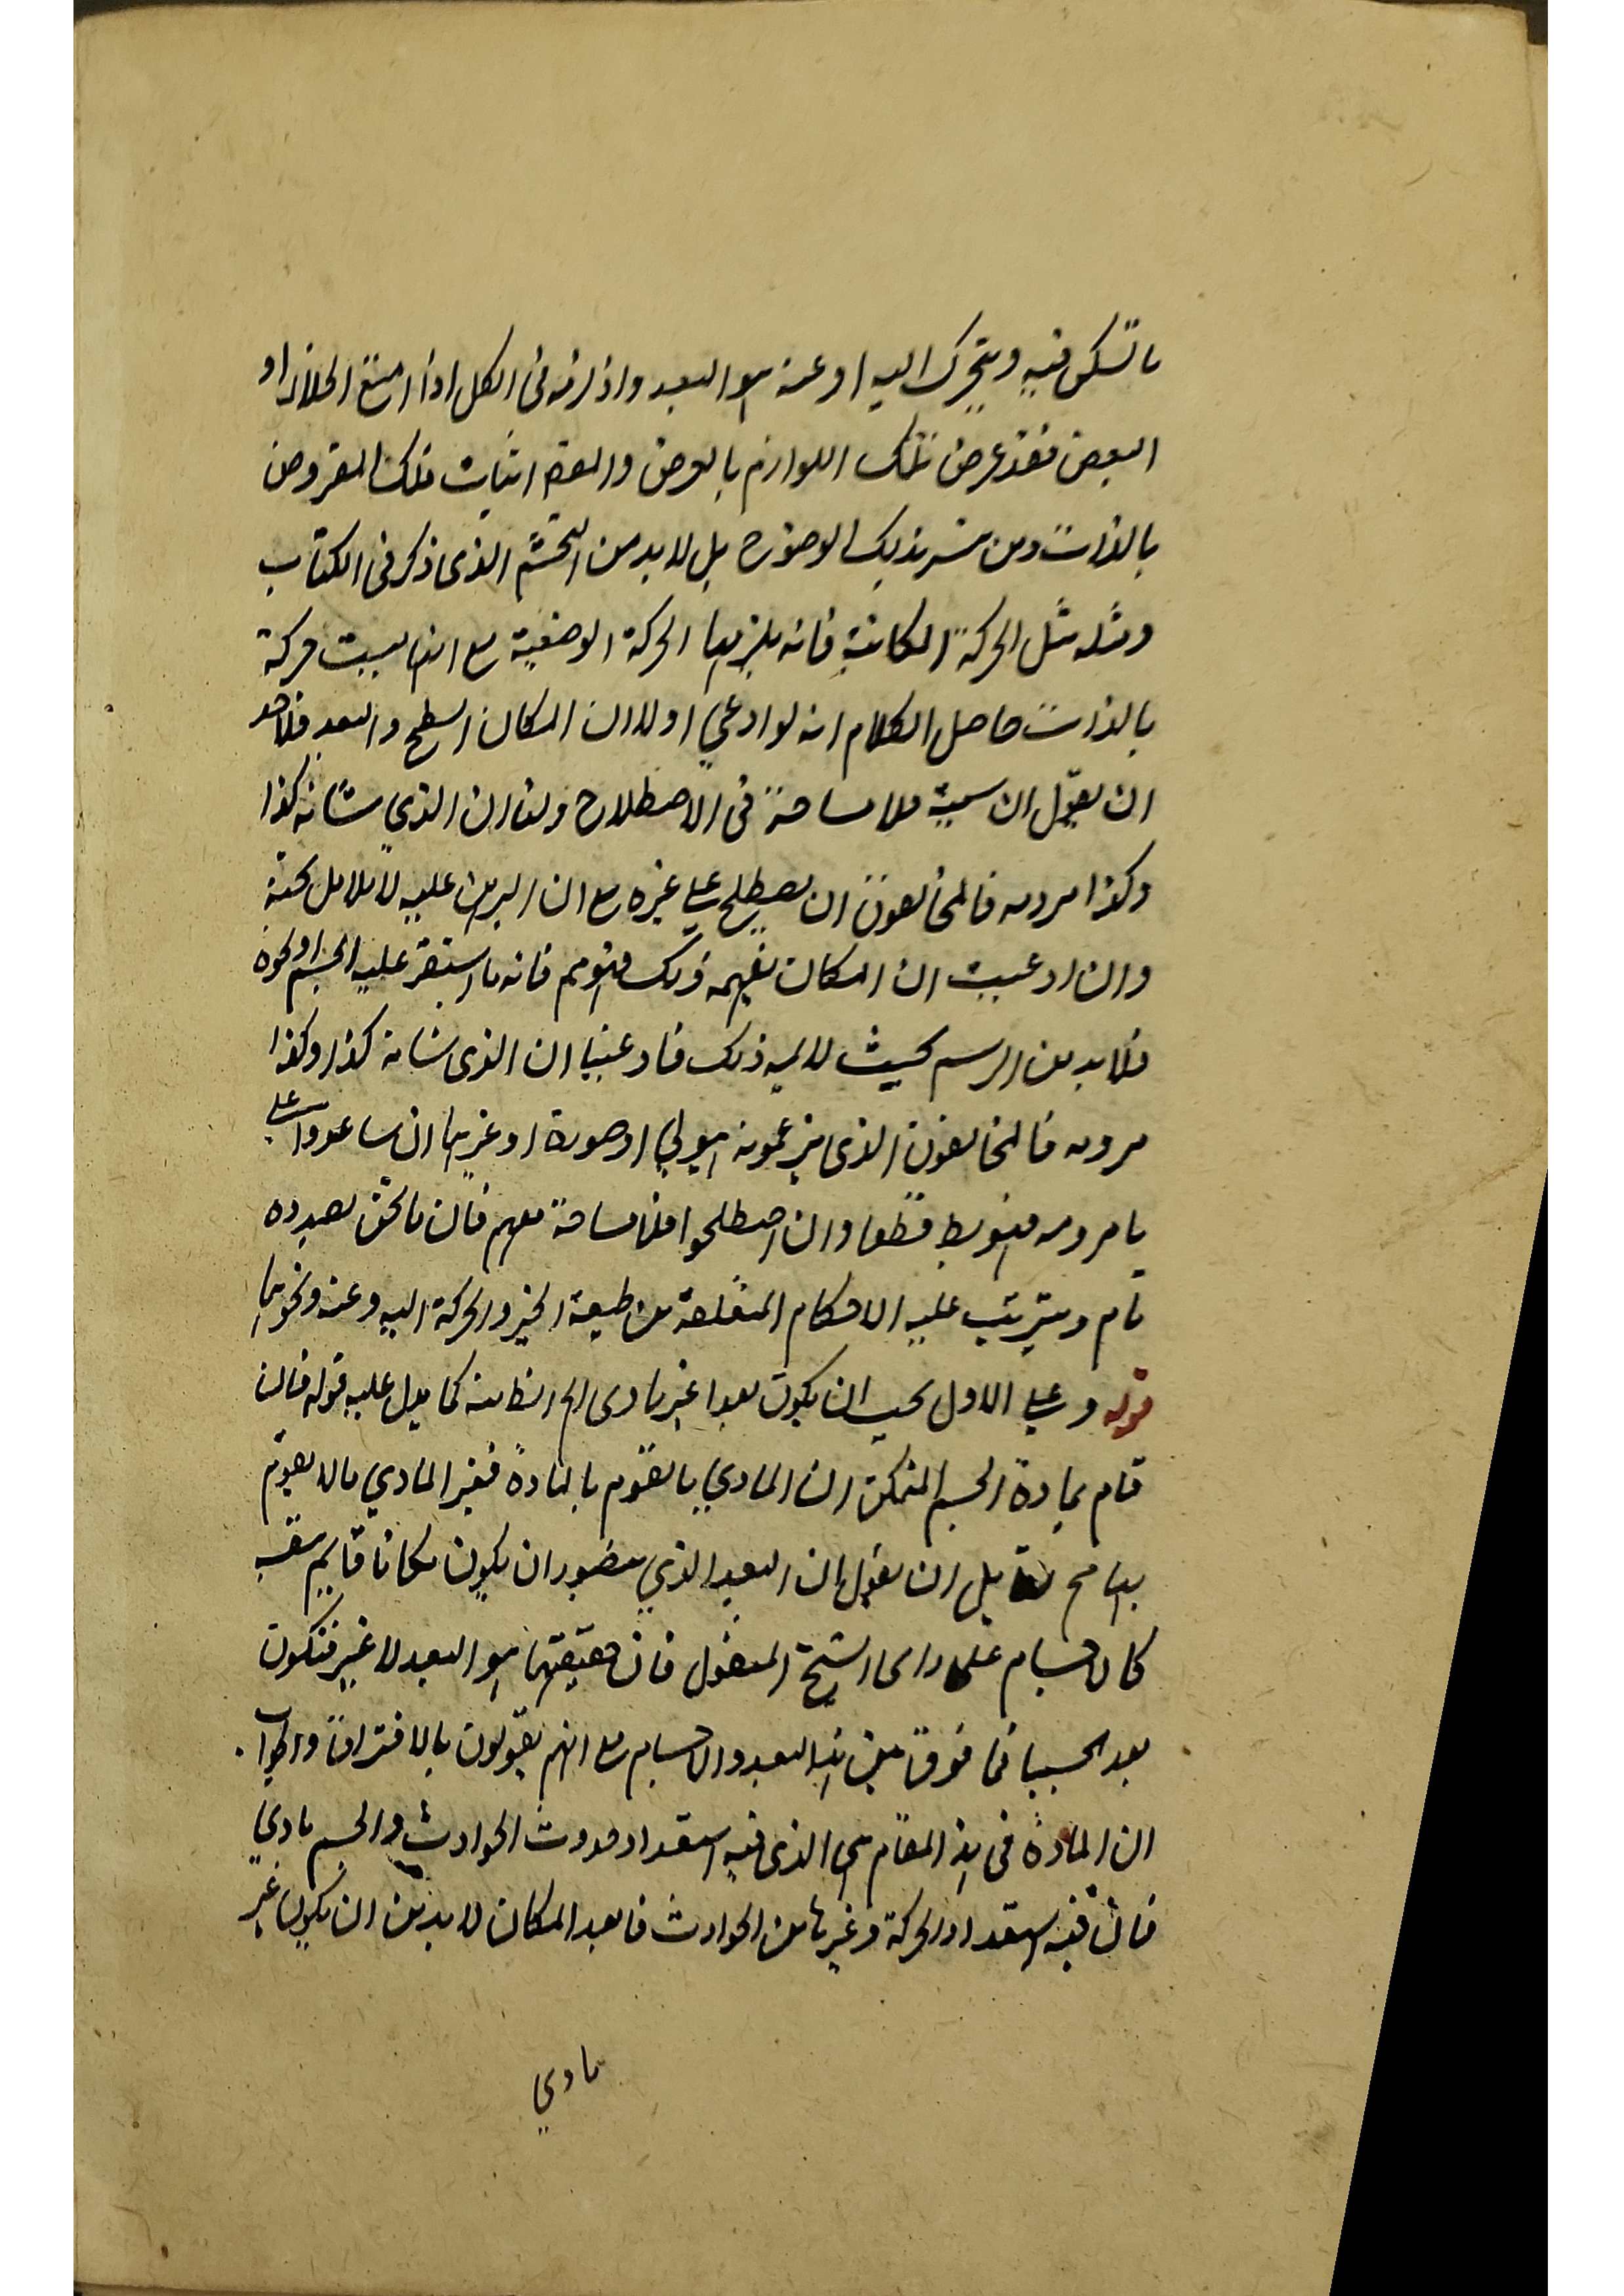 ما تسكن فيه ويتحرك اليه او عنه هو البعد واذ لزمه في الكل اذا امتنع الخلاء او
البعض فقد عرض تلك اللوازم بالعرض والمقص اثبات ذلك المفروض
بالذات ومن ثم بذلك الوضوح بل لابد من التجشم الذى ذكر فى الكتاب
ومثله مثل الحركة المكانية فانه يلزمها الحركة الوضعية مع انها ليست حركة
بالذات حاصل الكلام انه لو ادعي اولا ان المكان السطح والبعد فلاحد
ان يقول ان سميته فلا مشاحة فى الاصطلاح ولو ان الذي شانه كذا
وكذا امر وه فالمخالفون ان يصطلح علي غيره مع ان البرهان عليه
وان ادعيت ان المكان يفهمه ذلك فتوهم فانه ما استقر عليه الجسم او نحوه
فلابد من الرسم بحيث ذلك فادعينا ان الذى شانه كذا وكذا
فالمخالفون الذى يزعمونه هيولي او صورة او غيرهما ان ساعدوا علي
قطعا وان اصطلحوا فلا مشاحة معهم فان ما نحن بصدده
تام ويترتب عليه الاحكام المتعلقة من طبيعة الحيز والحركة اليه وعنه ونحوهما
قوله وعلي الاول يجب ان يكون بعدا غير مادى الخ الظانه كما يدل عليه قوله فان
قام بمادة الجسم المتمكن ان المادي ما تقوم بالمادة فغير المادي ما لا يقوم
بها مح قابل ان يقول ان البعد الذي يتصور ان يكون مكانا قايم بنفسه
كالاجسام على راى الشيخ المقتول فان حقيقتهما هو البعد لا غير فتكون
بعد الجسم فما فرق بين هذا البعد والاجسام مع انهم يقولون بالافتراق والجواب
ان المادة فى هذا المقام هى الذى فيه استعداد حدوث الحوادث والجسم مادي
فان فيه استعداد الحركة وغيرها من الحوادث فابعد المكان لابد من ان يكون غير
مادي